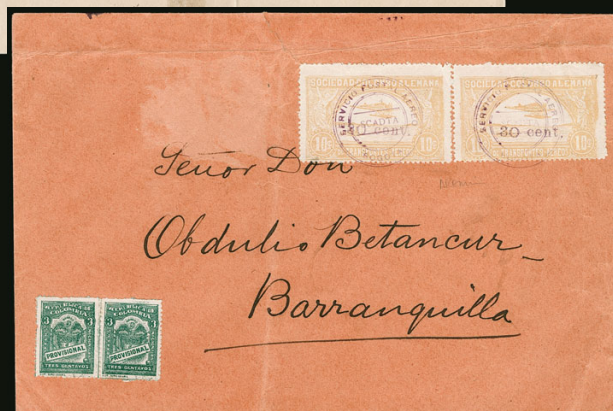 SOCIEDAD COLOMBO ALEMANA
10¢ 10¢
SERVICIO POSTAL AEREO
SCADTA
30 cent.
10¢
SERVICIO POSTAL AEREO
30 cent.
Señor Don
Obdulio Betancur
Barranquilla
REPUBLICA DE COLOMBIA
3 3
PROVISIONAL
TRES CENTAVOS
REPUBLICA DE COLOMBIA
3 3
PROVISIONAL
TRES CENTAVOS